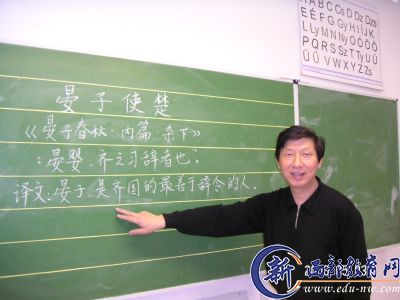 晏子使楚
《晏子春秋·内篇·杂下》
:晏婴,齐之习辞者也"。
译文:晏子,是齐国的最善于辞令的人。
ABCCsDDzDzs
EÉFGGyHIÍJK
LLyMNNyOÓÖŐ
PQRSSzTTyUÚ
ÜŰVWXYZZs
新 西部教育网
www.edu-nw.com